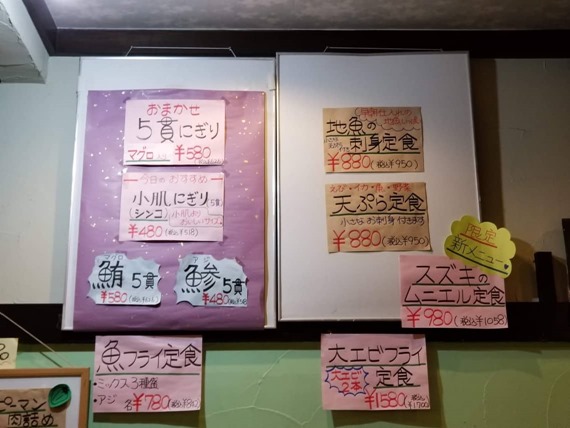 おまかせ
5貫にぎり
マグロ入り ¥580
今日のおすすめ
小肌にぎり
(シンコ)
5貫
¥480(税込¥518)
マグロ
鮪 5貫
¥580
アジ
鰺 5貫
¥480
地魚の
刺身定食
¥880(税込¥950)
エビ・イカ・魚・野菜
天ぷら定食
小さなお刺身付きます
¥880(税込¥950)
限定
新メニュー
スズキの
ムニエル定食
¥980(税込¥1058)
魚フライ定食
・ミックス3種盛
・アジ 各¥780
大エビフライ
定食
大エビ
2本
¥1580(税込¥1700)
ピーマン
肉詰め